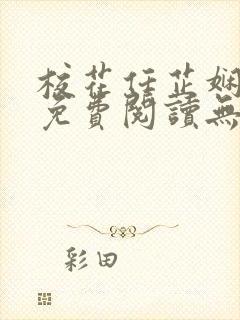 校花任芷娴
免費閱讀無
彩田